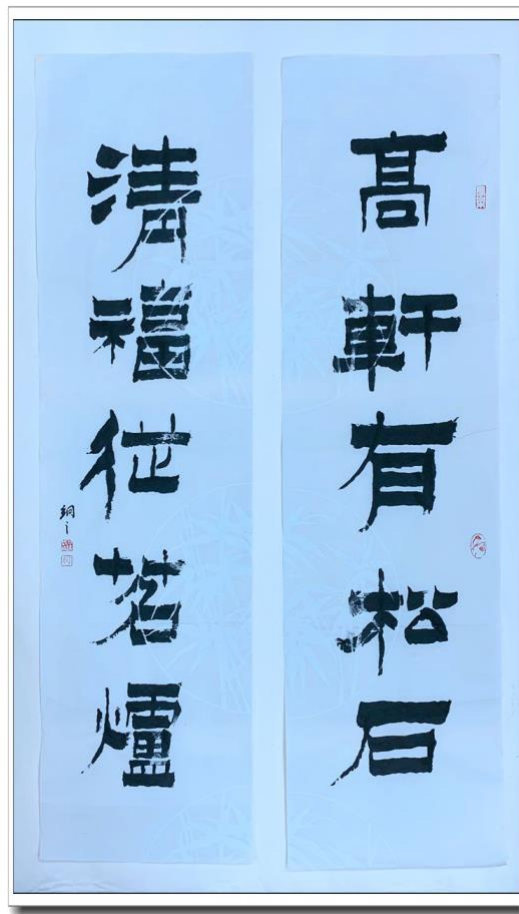 髙軒有松石
清福從茗爐